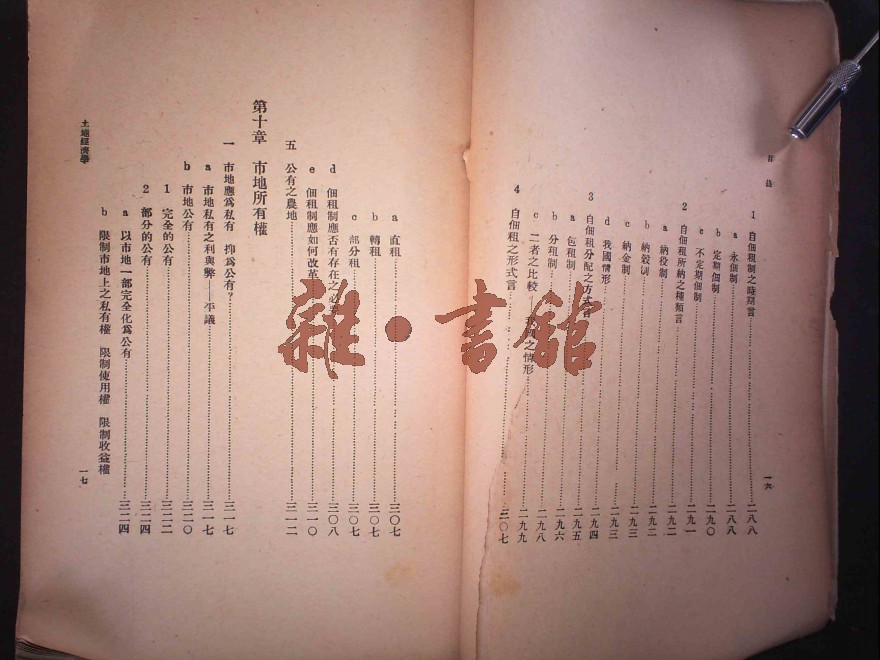 目錄
1 自佃租制之時期言 二八八
a 永佃制 二八八
b 定期佃制 二九〇
c 不定期佃制 二九一
2 自佃租所納之種類言
a 納役制 二九二
b 納穀制 二九二
c 納金制 二九三
d 我國情形 二九三
3 自佃租分配之方式言 二九四
a 包租制 二九五
b 分租制 二九六
c 二者之比較 之情形 二九八
二九九
4 自佃租之形式言 三〇七
一六
a 直租 三〇七
b 轉租 三〇七
c 部分租 三〇七
d 佃租制應否有存在之必 三〇八
e 佃租制應如何改革 三一〇
五 公有之農地 三一二
第十章 市地所有權
一 市地應爲私有 抑爲公有? 三一七
a 市地私有之利與弊——平議 三一七
b 市地公有 三二〇
1 完全的公有 三二二
2 部分的公有 三二四
a 以市地一部完全化爲公有 三二四
b 限制市地上之私有權 限制使用權 限制收益權
土地經濟學
一七
雜·書館